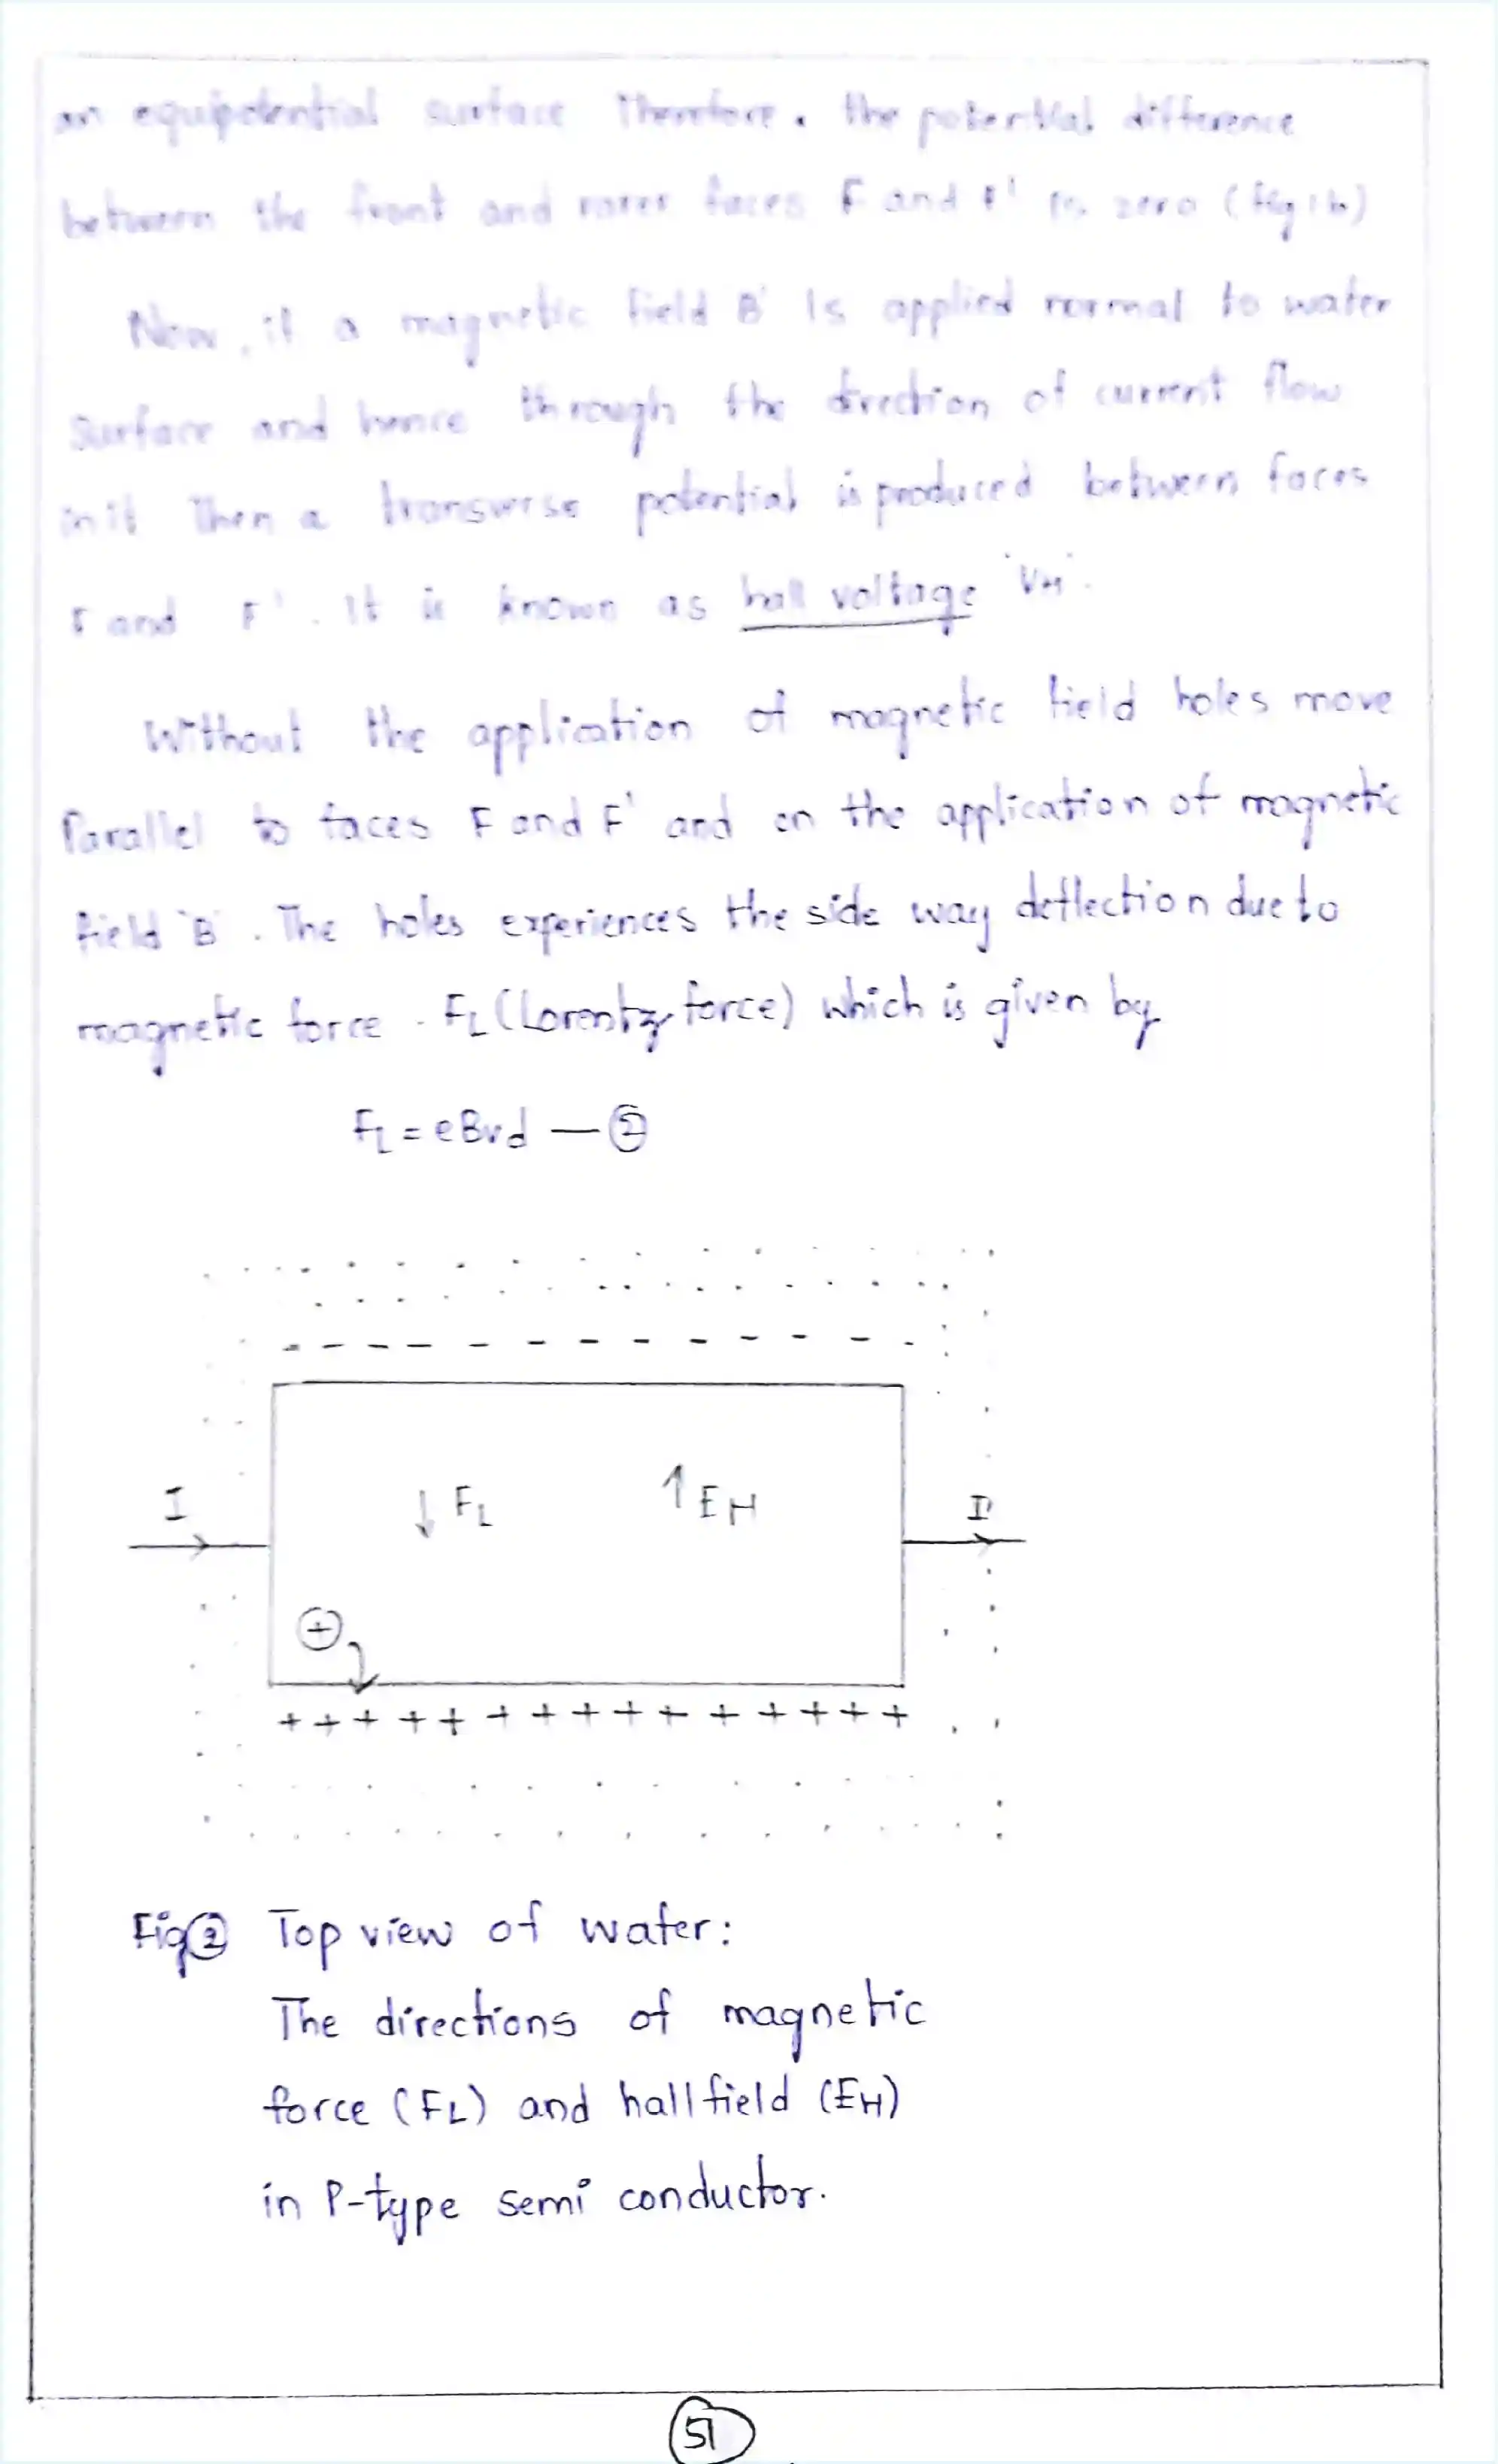 an equipotential surface Therefore. the potential difference
between the front and rarer faces F and F' is zero (fig 1b)
Now, if a magnetic field B' Is applied normal to water
Surface and hence through the direction of current flow
in it Then a transverse potential is produced between faces
F and F'. It is known as hall voltage 'VH'.
Without the application of magnetic field holes move
Parallel to faces F and F' and on the application of magnetic
field 'B'. The holes experiences the side way deflection due to
magnetic force. FL (Lorentz force) which is given by
FL = eBvd — ②
- - - - - - - - - - -
I ↓ FL ↑ EH I
⊕
+ + + + + + + + + + + + + + +
Fig ② Top view of wafer:
The directions of magnetic
force (FL) and hall field (EH)
in P-type semi conductor.
51